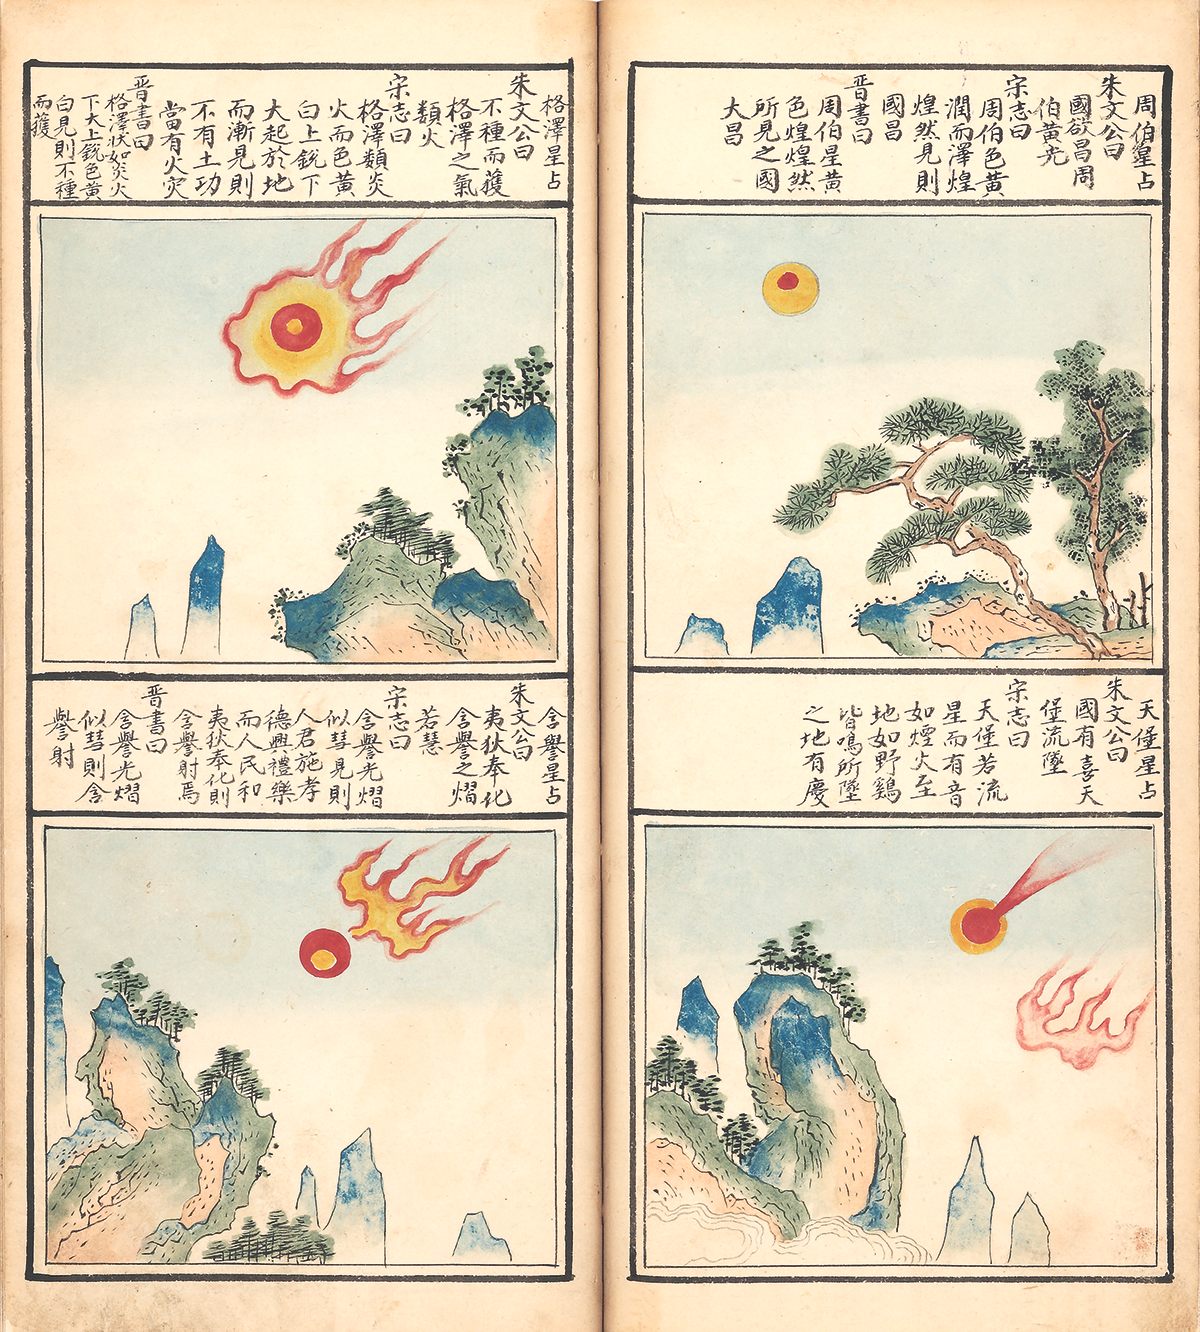 周伯星占
朱文公曰
國欲昌周
伯黄光
宋志曰
周伯色黄
潤而澤煌
煌然見則
國昌
晋書曰
周伯星黄
色煌煌然
所見之國
大昌
天堡星占
朱文公曰
國有喜天
堡流墜
宋志曰
天堡若流
星而有音
如煙火至
地如野鷄
皆鳴所墜
之地有慶
格澤星占
朱文公曰
不種而獲
格澤之氣
類火
宋志曰
格澤類炎
火而色黄
白上銳下
大起於地
而漸見則
不有土功
當有火灾
晋書曰
格澤狀如炎火
下大上銳色黄
白見則不種
而獲
含譽星占
朱文公曰
夷狄奉化
含譽之熠
若慧
宋志曰
含譽光熠
似彗見則
人君施孝
德興禮樂
而人民和
夷狄奉化則
含譽射焉
晋書曰
含譽光熠
似彗則含
譽射